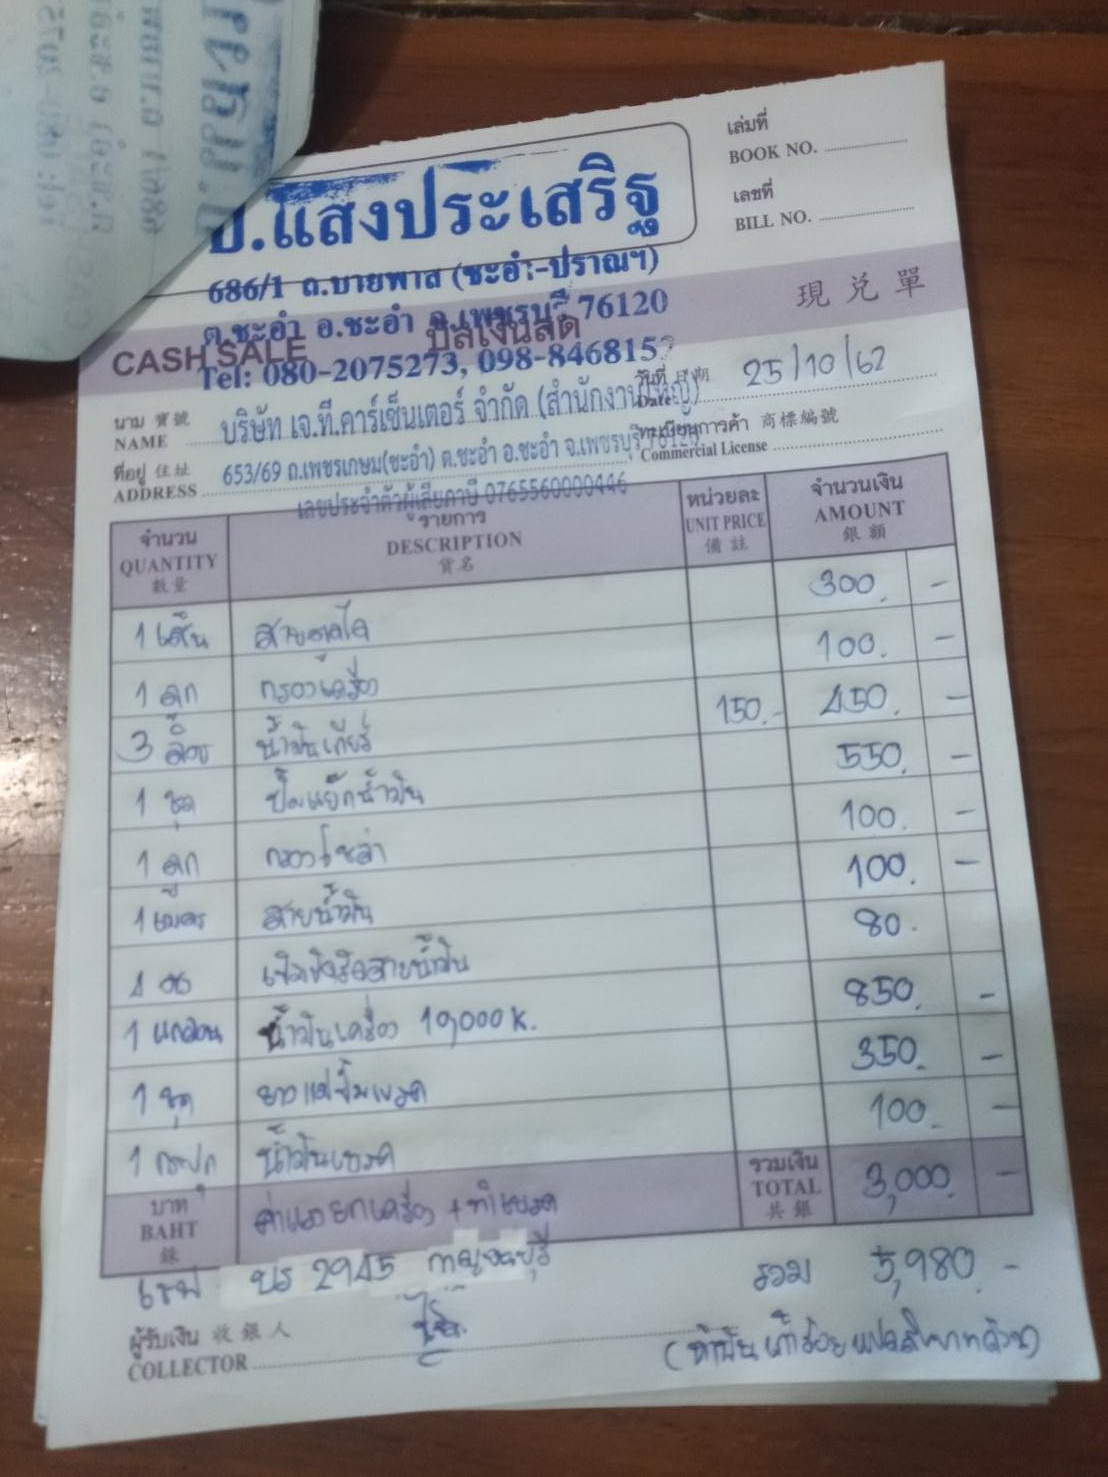 เล่มที่
BOOK NO.
เลขที่
BILL NO.
ป.แสงประเสริฐ
686/1 ถ.บายพาส (ชะอำ-ปราณฯ)
ต.ชะอำ อ.ชะอำ จ.เพชรบุรี 76120
Tel: 080-2075273, 098-846815
CASH SALE บิลเงินสด 現兌單
วันที่ 日期 Date 25/10/62
นาม 寶號 NAME บริษัท เจ.ที.คาร์เซ็นเตอร์ จำกัด (สำนักงานใหญ่)
ทะเบียนการค้า 商標編號 Commercial License
ที่อยู่ 住址 ADDRESS 653/69 ถ.เพชรเกษม(ชะอำ) ต.ชะอำ อ.ชะอำ จ.เพชรบุรี 76120
เลขประจำตัวผู้เสียภาษี 0765560000446
จำนวน รายการ หน่วยละ จำนวนเงิน
QUANTITY DESCRIPTION UNIT PRICE AMOUNT
數量 貨名 備註 銀額
1 เส้น สายคูลไล 300.-
1 ลูก กรองเครื่อง 100.-
3 ลิตร น้ำมันเกียร์ 150.- 450.-
1 ชุด ปั๊มแย๊กน้ำมัน 550.-
1 ลูก กรองโซล่า 100.-
1 เมตร สายน้ำมัน 100.-
4 ตัว เข็มขัดรัดสายน้ำมัน 80.
1 แกลลอน น้ำมันเครื่อง 19,000 K. 850.-
1 ชุด ยางแม่ปั๊มเบรค 350.-
1 กระปุก น้ำมันเบรค 100.-
บาท BAHT 銖 ค่าแรงยกเครื่อง + ทำเบรค รวมเงิน TOTAL 共銀 3,000.-
บร 2945 กาญจนบุรี รวม 5,980.-
ผู้รับเงิน 收銀人
COLLECTOR
(ห้าพันเก้าร้อยแปดสิบบาทถ้วน)